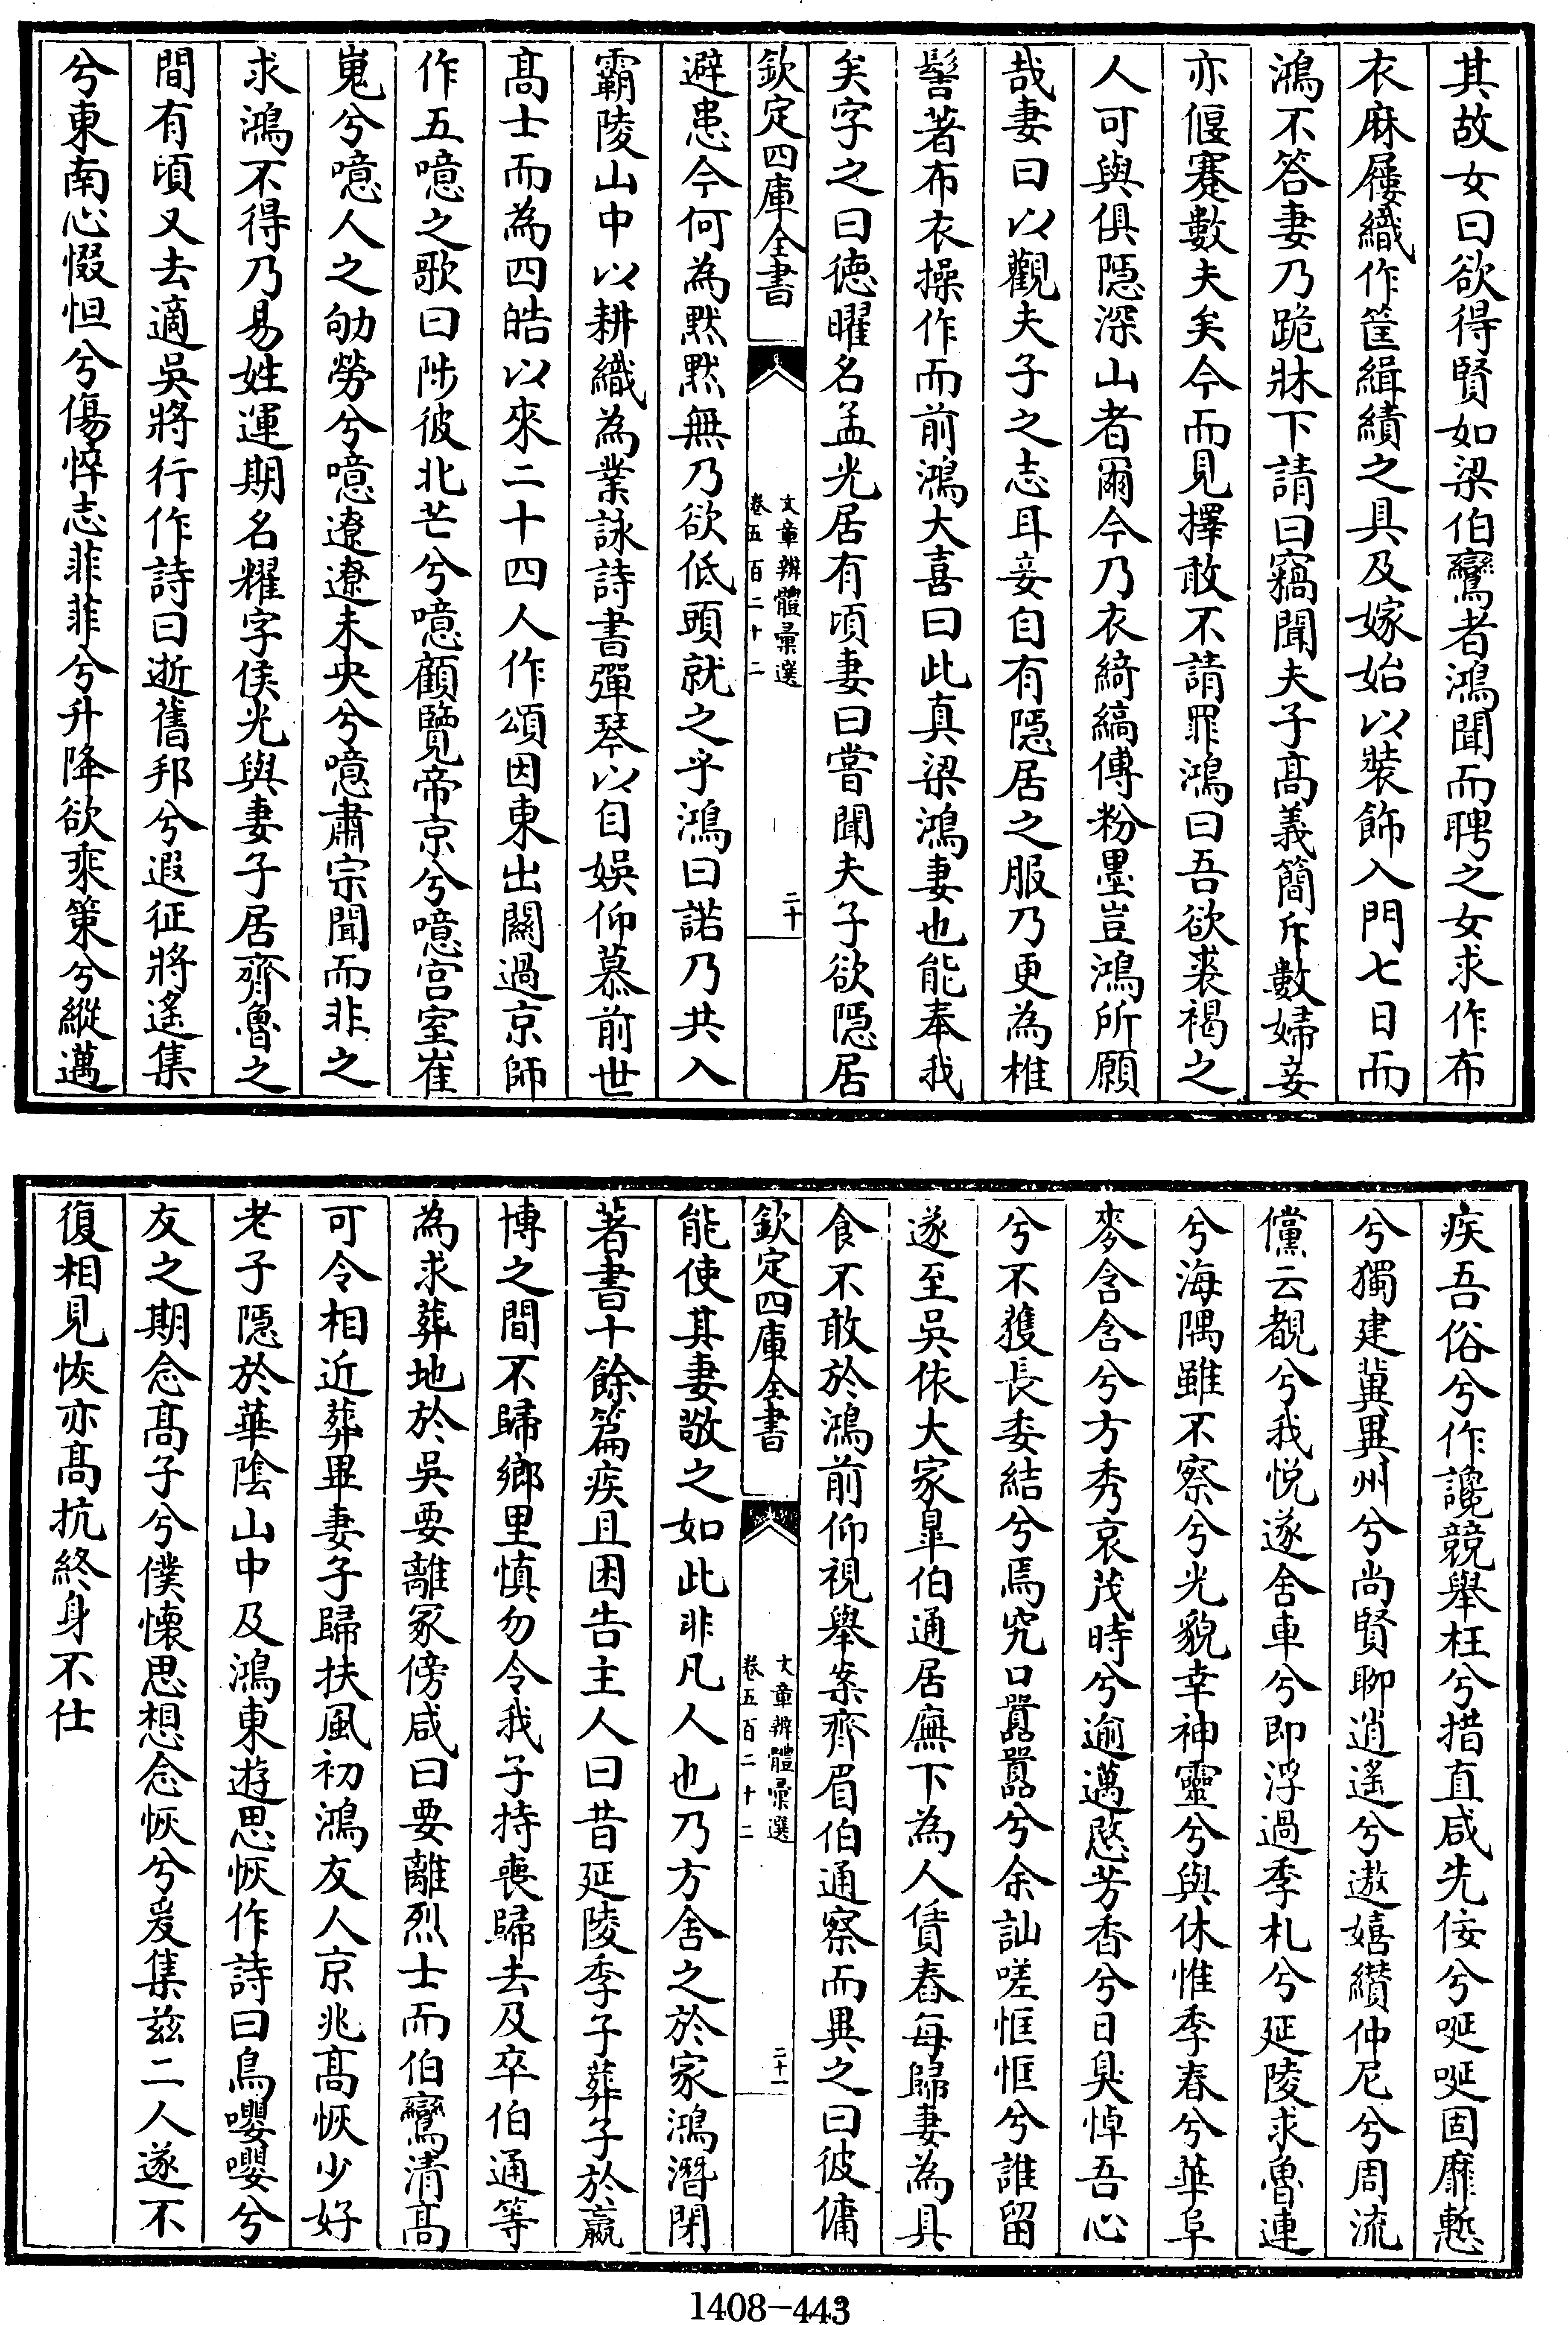 其故女曰欲得賢如梁伯鸞者鴻聞而聘之女求作布
衣麻屨織作筐緝績之具及嫁始以裝飾入門七日而
鴻不答妻乃跪牀下請曰竊聞夫子髙義簡斥數婦妾
亦偃蹇數夫矣今而見擇敢不請罪鴻曰吾欲裘褐之
人可與俱隠深山者爾今乃衣綺縞傅粉墨豈鴻所願
哉妻曰以觀夫子之志耳妾自有隠居之服乃更為椎
髻著布衣操作而前鴻大喜曰此真梁鴻妻也能奉我
矣字之曰徳曜名孟光居有頃妻曰嘗聞夫子欲隠居
欽定四庫全書
文章辨體彚選
卷五百二十二
二十
避患今何為黙黙無乃欲低頭就之乎鴻曰諾乃共入
霸陵山中以耕織為業詠詩書彈琴以自娛仰慕前世
髙士而為四皓以來二十四人作頌因東出闗過京師
作五噫之歌曰陟彼北芒兮噫顧覽帝京兮噫宫室崔
嵬兮噫人之劬勞兮噫遼遼未央兮噫肅宗聞而非之
求鴻不得乃易姓運期名耀字侯光與妻子居齊魯之
間有頃又去適吳將行作詩曰逝舊邦兮遐征將遙集
兮東南心惙怛兮傷悴志菲菲兮升降欲乘策兮縱邁
疾吾俗兮作讒競舉枉兮措直咸先佞兮唌唌固靡慙
兮獨建冀異州兮尚賢聊逍遙兮遨嬉纘仲尼兮周流
儻云覩兮我悦遂舍車兮即浮過季札兮延陵求魯連
兮海隅雖不察兮光貌幸神靈兮與休惟季春兮華阜
麥含含兮方秀哀茂時兮逾邁愍芳香兮日臭悼吾心
兮不獲長委結兮焉究口囂囂兮余訕嗟恇恇兮誰留
遂至吳依大家臯伯通居廡下為人賃舂每歸妻為具
食不敢於鴻前仰視舉案齊眉伯通察而異之曰彼傭
欽定四庫全書
文章辨體彚選
卷五百二十二
二十一
能使其妻敬之如此非凡人也乃方舍之於家鴻潛閉
著書十餘篇疾且困告主人曰昔延陵季子葬子於嬴
博之間不歸鄉里慎勿令我子持喪歸去及卒伯通等
為求葬地於吳要離冢傍咸曰要離烈士而伯鸞清髙
可令相近葬畢妻子歸扶風初鴻友人京兆髙恢少好
老子隠於華陰山中及鴻東遊思恢作詩曰鳥嚶嚶兮
友之期念髙子兮僕懐思想念恢兮爰集兹二人遂不
復相見恢亦髙抗終身不仕
1408-443